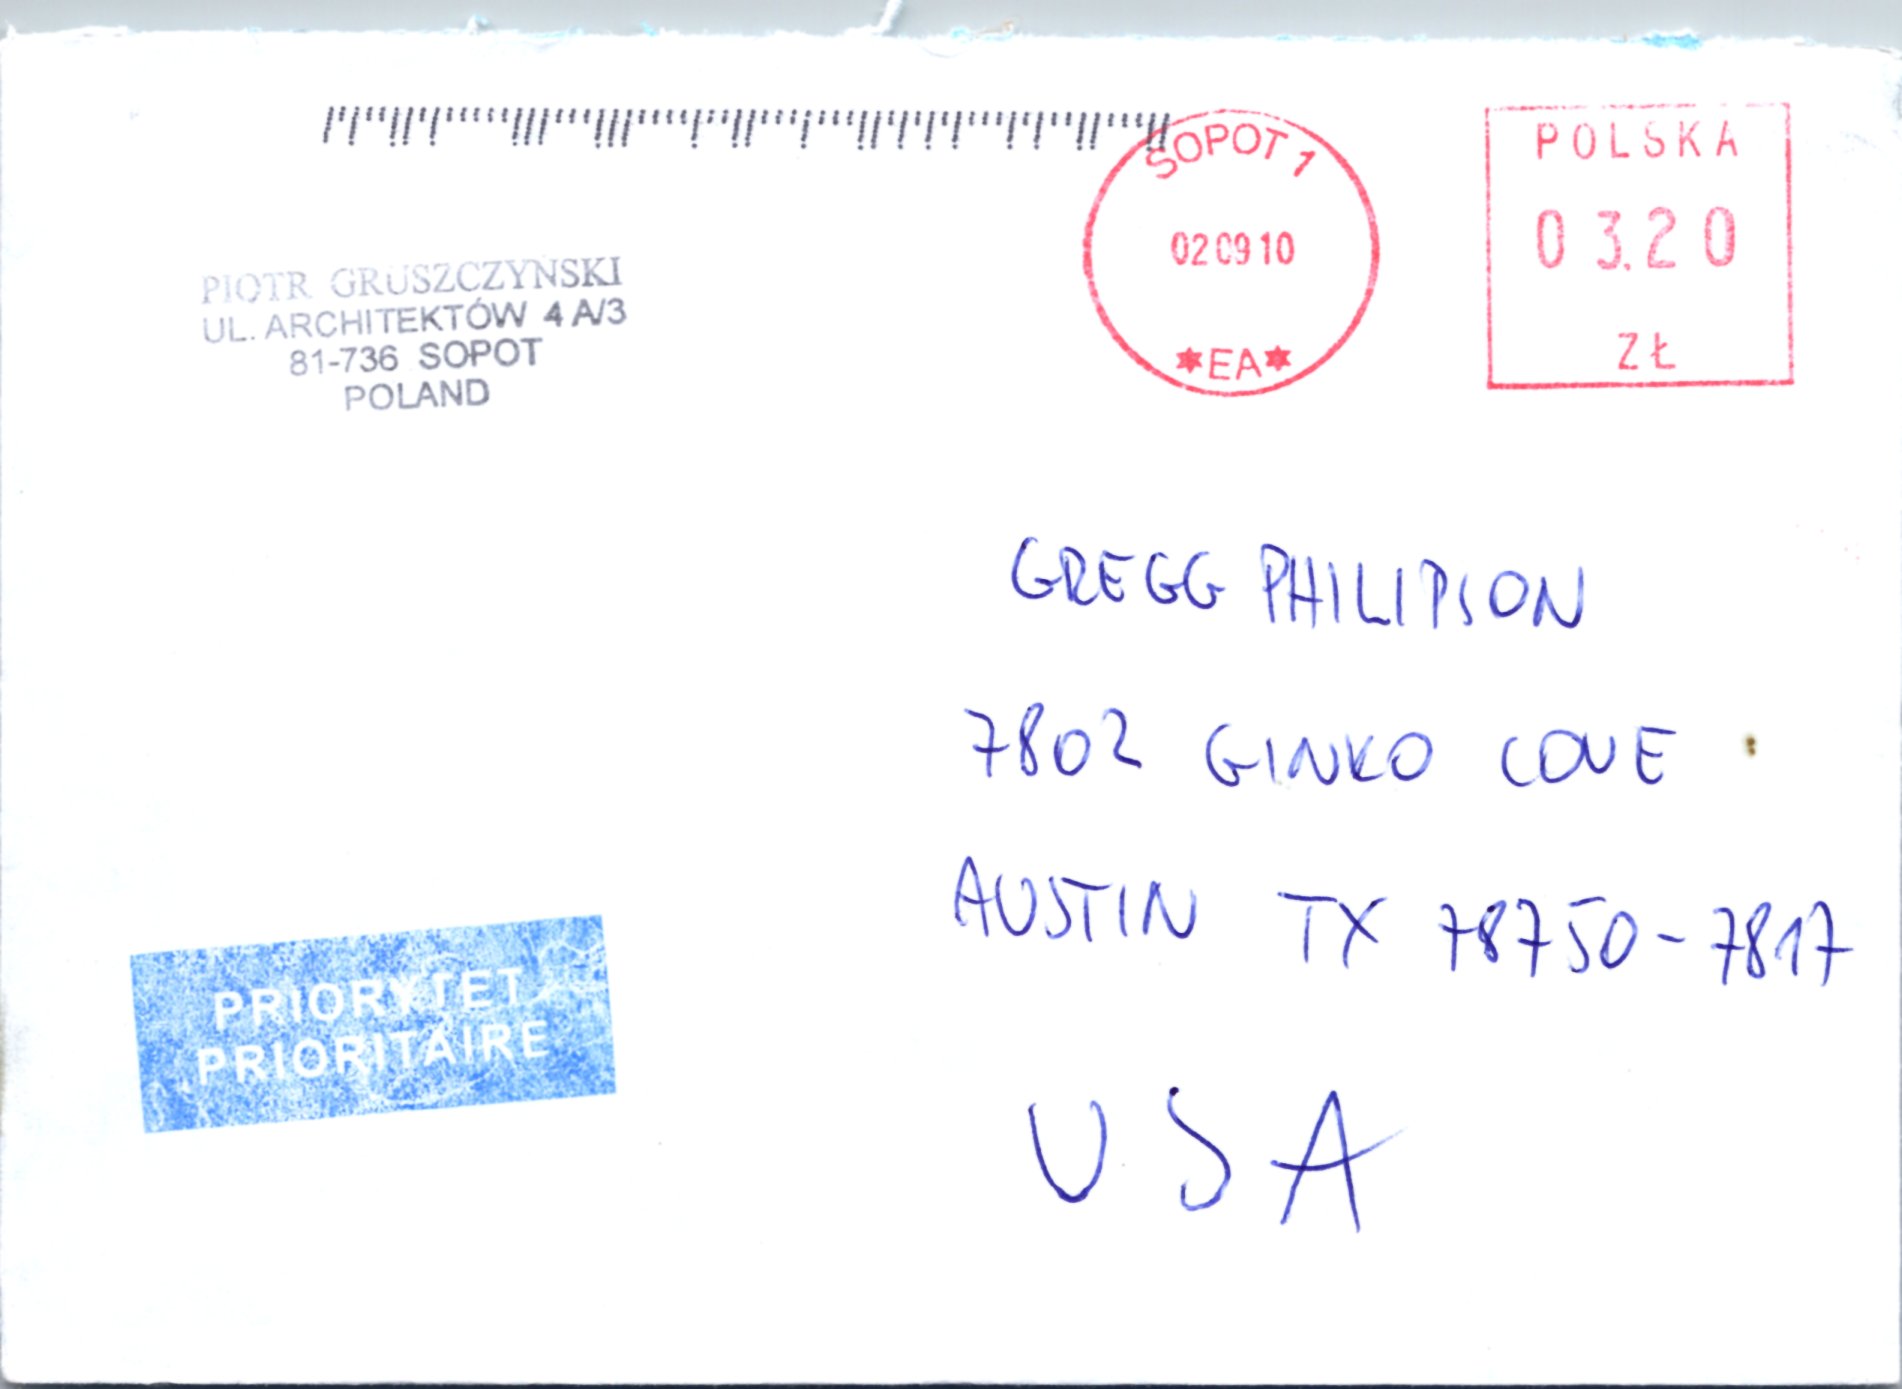 SOPOT 1
020910
*EA*
POLSKA
03.20
ZŁ
PIOTR GRUSZCZYŃSKI
UL. ARCHITEKTÓW 4 A/3
81-736 SOPOT
POLAND
GREGG PHILIPSON
7802 GINKO COVE
AUSTIN TX 78750-7817
USA
PRIORYTET
PRIORITAIRE